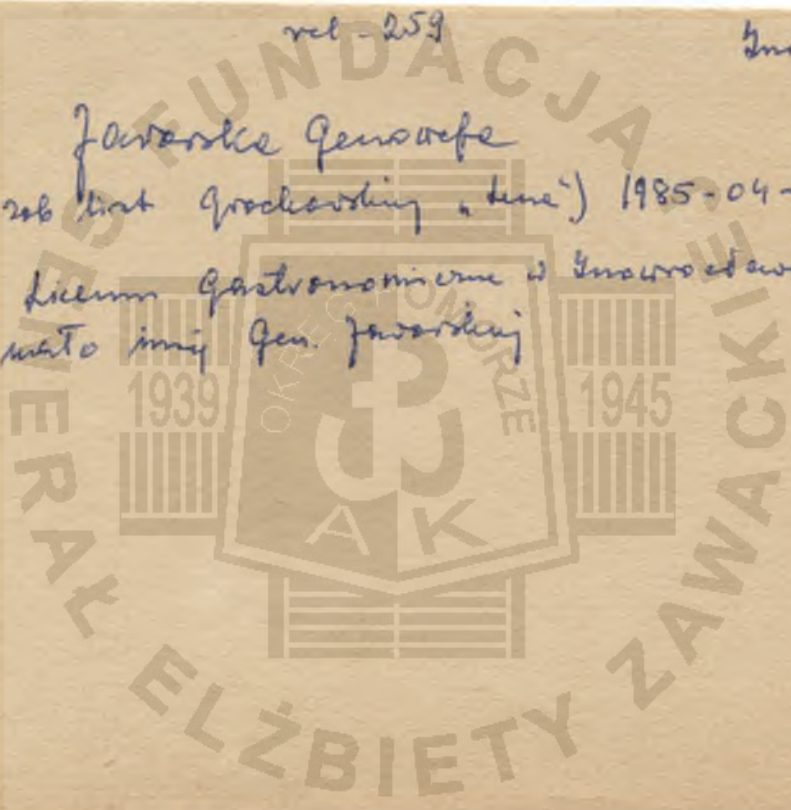 rel - 259
Ino
Jaworska Genowefa
zob list Grochowskiej „tena") 1985-04-
Liceum Gastronomiczne w Inowrocław
imię Gen. Jaworskiej
FUNDACJA GENERAŁ ELŻBIETY ZAWACKIEJ
OKRĘG POMORZE
1939
1945
AK